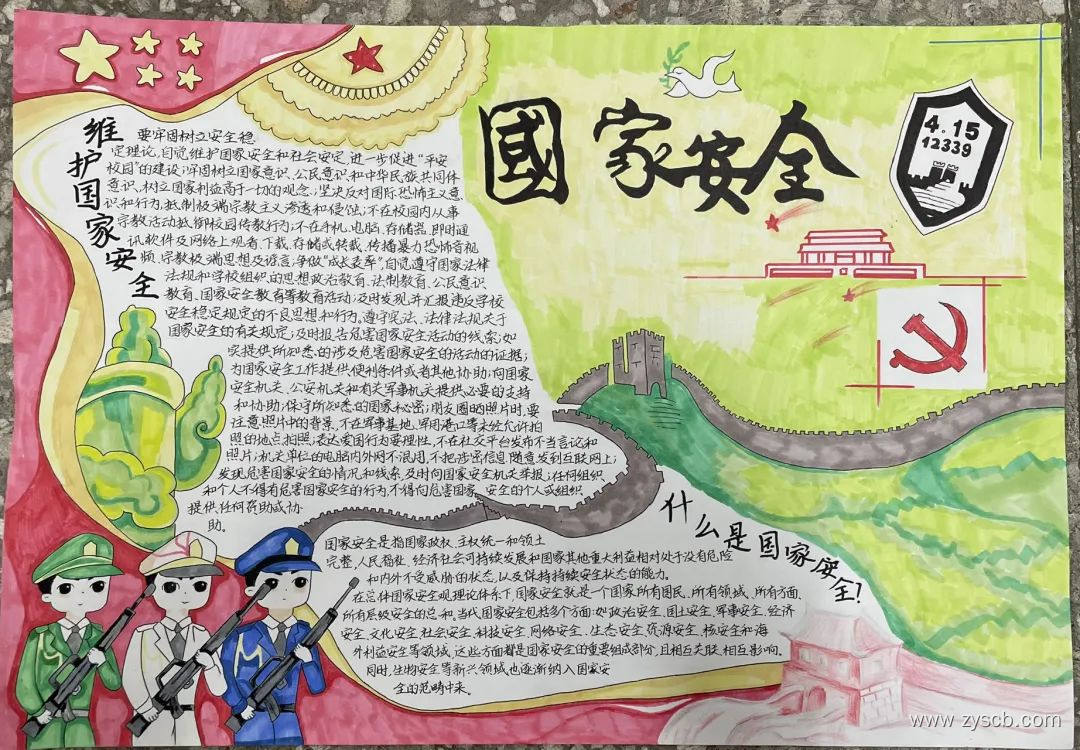 國家安全
4.15
12339
维护国家安全
要牢固树立安全稳
定理论,自觉维护国家安全和社会安定,进一步促进“平安
校园”的建设;牢固树立国家意识、公民意识和中华民族共同体
意识,树立国家利益高于一切的观念;坚决反对国际恐怖主义意
识和行为,抵制极端宗教主义渗透和侵蚀;不在校园内从事
宗教活动,抵御校园传教行为;不在手机、电脑、存储器、即时通
讯软件及网络上观看、下载、存储或转载、传播暴力恐怖音视
频、宗教极端思想及谣言;争做“成长表率”,自觉遵守国家法律
法规和学校组织的思想政治教育、法制教育、公民意识
教育、国家安全教育等教育活动;及时发现并汇报违反学校
安全稳定规定的不良思想和行为。遵守宪法、法律法规关于
国家安全的有关规定;及时报告危害国家安全活动的线索;如
实提供所知悉的涉及危害国家安全的活动的证据;
为国家安全工作提供便利条件或者其他协助;向国家
安全机关、公安机关和有关军事机关提供必要的支持
和协助;保守所知悉的国家秘密;朋友圈晒照片时,要
注意照片中的背景,不在军事基地、军用港口等未经允许拍
照的地点拍照,表达爱国行为要理性,不在社交平台发布不当言论和
照片;机关单位的电脑内外网不混用,不把涉密信息随意发到互联网上;
发现危害国家安全的情况和线索,及时向国家安全机关举报;任何组织
和个人不得有危害国家安全的行为,不得向危害国家、安全的个人或组织
提供任何资助或协
助。
什么是国家安全!
国家安全是指国家政权、主权统一和领土
完整、人民福祉、经济社会可持续发展和国家其他重大利益相对处于没有危险
和内外不受威胁的状态,以及保持持续安全状态的能力。
在总体国家安全观理论体系下,国家安全就是一个国家所有国民、所有领域、所有方面、
所有层级安全的总和。当代国家安全包括多个方面:如政治安全、国土安全、军事安全、经济
安全、文化安全、社会安全、科技安全、网络安全、生态安全、资源安全、核安全和海
外利益安全等领域,这些方面都是国家安全的重要组成部分,且相互关联,相互影响。
同时,生物安全等新兴领域也逐渐纳入国家安
全的范畴中来。
www.zyscb.com